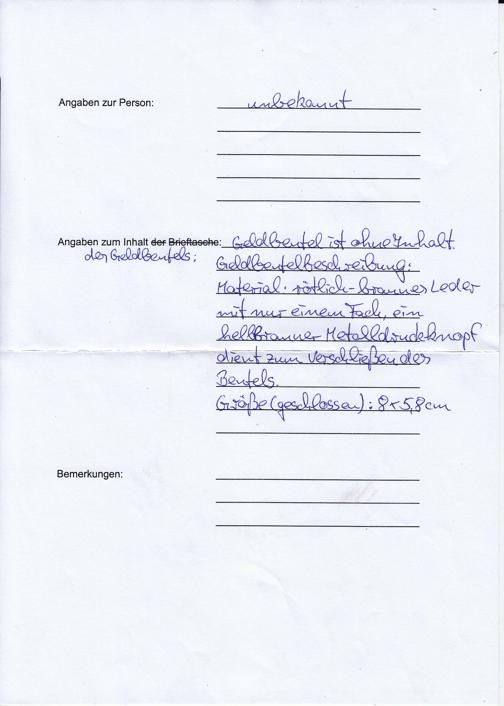 Angaben zur Person: unbekannt
Angaben zum Inhalt der Brieftasche: Geldbeutel ist ohne Inhalt.
des Geldbeutels:
Geldbeutelbeschreibung:
Material: rötlich-braunes Leder
mit nur einem Fach, ein
hellbrauner Metalldruckknopf
dient zum Verschließen des
Beutels.
Größe (geschlossen): 8 x 5,8 cm
Bemerkungen: